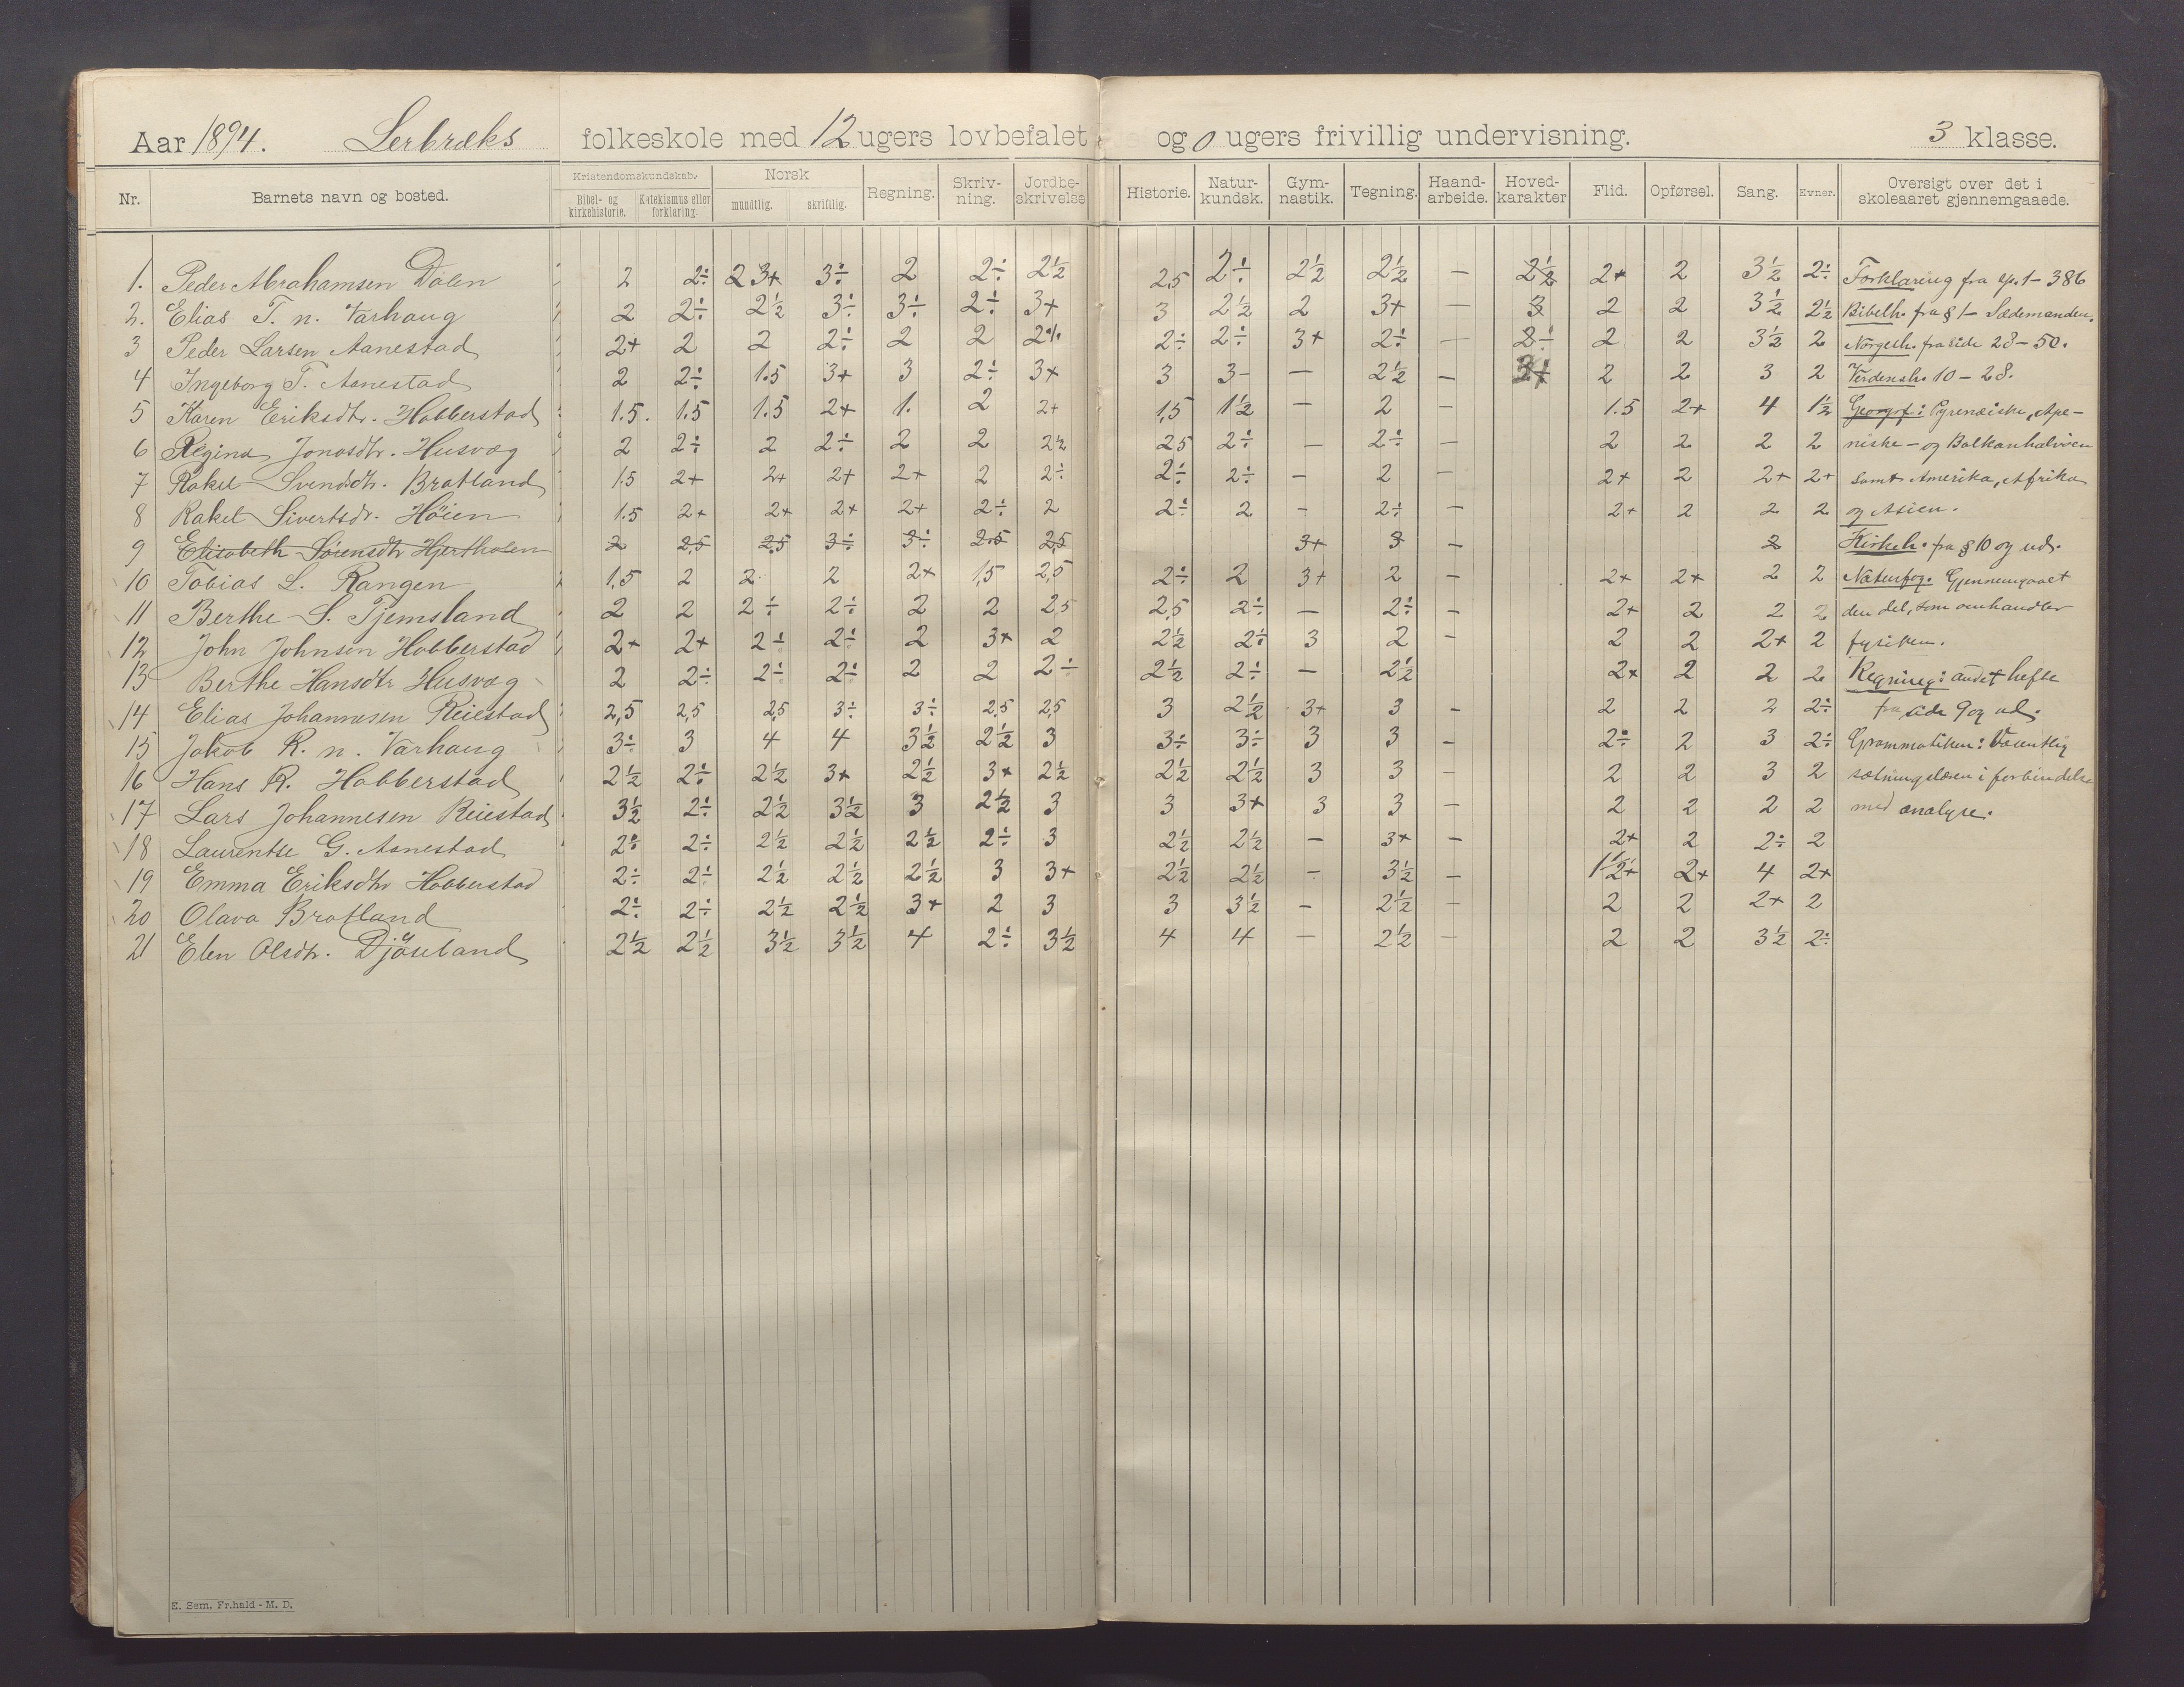 Aar 1894. Lerbræks folkeskole med 12 ugers lovbefalet og 0 ugers frivillig undervisning. 3 klasse.
Nr. Barnets navn og bosted. Kristendomskundskab. Bibel- og kirkehistorie. Katekismus eller forklaring. Norsk mundtlig. skriftlig. Regning. Skriv-ning. Jordbe-skrivelse Historie. Natur-kundsk. Gym-nastik. Tegning. Haand-arbeide. Hoved-karakter Flid. Opførsel. Sang. Evner. Oversigt over det i skoleaaret gjennemgaaede.
1. Peder Abrahamsen Dalen 2 2÷ 2 3+ 3÷ 2 2÷ 2½ 2,5 2÷ 2½ 2½ — 2½ 2+ 2 3½ 2÷ Forklaring fra sp. 1 – 386
2. Elias T. n. Varhaug 2 2÷ 2½ 3÷ 3÷ 2÷ 3+ 3 2½ 2 3+ — 3 2 2 3½ 2½ Bibelh. fra § 1 – Sædemanden.
3 Peder Larsen Aanestad 2+ 2 2 2÷ 2 2 2÷ 2÷ 2÷ 3+ 2÷ — 2÷ 2 2 3½ 2 Norgesh. fra side 28 – 50.
4 Ingeborg T. Aanestad 2 2÷ 1.5 3+ 3 2÷ 3+ 3 3- — 2½ — 3+ 2 2 3 2 Verdensh. 10 – 28.
5 Karen Eriksdtr. Hobberstad 1.5. 1.5 1.5 2+ 1. 2 2+ 1,5 1½ — 2 — 1.5 2+ 4 1½ Geogrf: Pyrenæiske, Ape-
6 Regina Jonasdtr. Husvæg 2 2÷ 2 2÷ 2 2 2½ 2,5 2÷ — 2÷ — 2 2 2 2 niske – og Balkanhalvöen
7 Rakel Svendsdtr. Bratland 1.5 2+ 2+ 2+ 2+ 2 2÷ 2÷ 2÷ — 2 — 2+ 2 2+ 2+ samt Amerika, Afrika
8 Rakel Sivertsdr. Höien 1.5 2+ 2+ 2+ 2+ 2÷ 2 2÷ 2 — 2÷ — 2+ 2 2 2 og Asien.
9 Elisabeth Sörensdtr Hjertholen 2 2,5 2,5 3÷ 3÷ 2,5 2,5 3+ 3 — 2 Kirkeh. fra § 10 og ud.
10 Tobias L. Rangen 1,5 2 2 2 2+ 1,5 2,5 2÷ 2 3+ 2 — 2+ 2+ 2 2 Naturfag. Gjennemgaaet
11 Berthe S. Tjemsland 2 2 2÷ 2÷ 2 2 2,5 2,5 2÷ — 2÷ — 2+ 2 2 2 den del, som omhandler
12 John Johnsen Hobberstad 2+ 2+ 2÷ 2÷ 2 3+ 2 2½ 2÷ 3 2 — 2 2 2+ 2 fysiken.
13 Berthe Hansdtr Husvæg 2 2÷ 2÷ 2÷ 2 2 2÷ 2½ 2÷ — 2½ 2+ 2 2 2 Regning: andet hefte
14 Elias Johannesen Reiestad 2,5 2,5 2,5 3÷ 3÷ 2,5 2,5 3 2½ 3+ 3 — 2 2 2 2÷ fra side 9 og ud.
15 Jakob R. n. Varhaug 3÷ 3 4 4 3½ 2½ 3 3÷ 3÷ 3 3 — 2÷ 2 3 2÷ Grammatiken: Væsentlig
16 Hans R. Hobberstad 2½ 2÷ 2½ 3+ 2½ 3+ 2½ 2½ 2½ 3 3 — 2 2 3 2 sætningslæren i forbindelse
17 Lars Johannesen Reiestad 3½ 2÷ 2½ 3½ 3 2½ 3 3 3+ 3 3 — 2 2 2 2 med analyse.
18 Laurentse G. Aanestad 2÷ 2÷ 2½ 2½ 2½ 2÷ 3 2½ 2½ — 3+ — 2+ 2 2÷ 2
19 Emma Eriksdtr Hobberstad 2÷ 2÷ 2½ 2½ 2½ 3 3+ 2½ 2½ — 3½ — 2+ 4 2+
20 Olava Bratland 2÷ 2÷ 2½ 2½ 3+ 2 3 3 3½ — 2½ — 2 2 2+ 2
21 Elen Olsdtr. Djösland 2½ 2½ 3½ 3½ 4 2÷ 3½ 4 4 — 2½ — 2 2 3½ 2÷
E. Sem. Fr.hald - M. D.